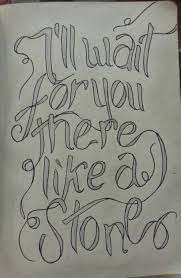 I'll wait
for you
there
like a
Stone